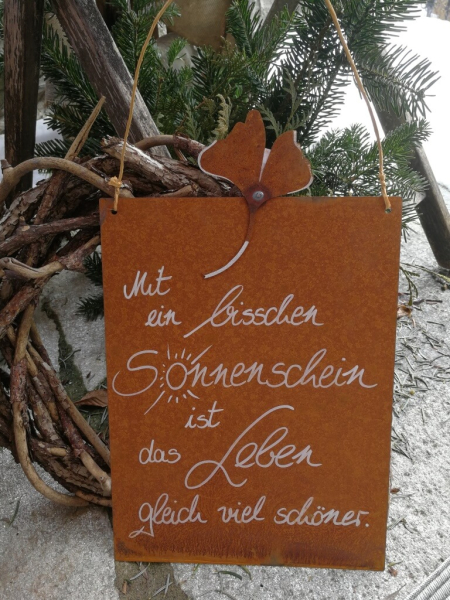 Mit
ein bisschen
Sonnenschein
ist
das Leben
gleich viel schöner.